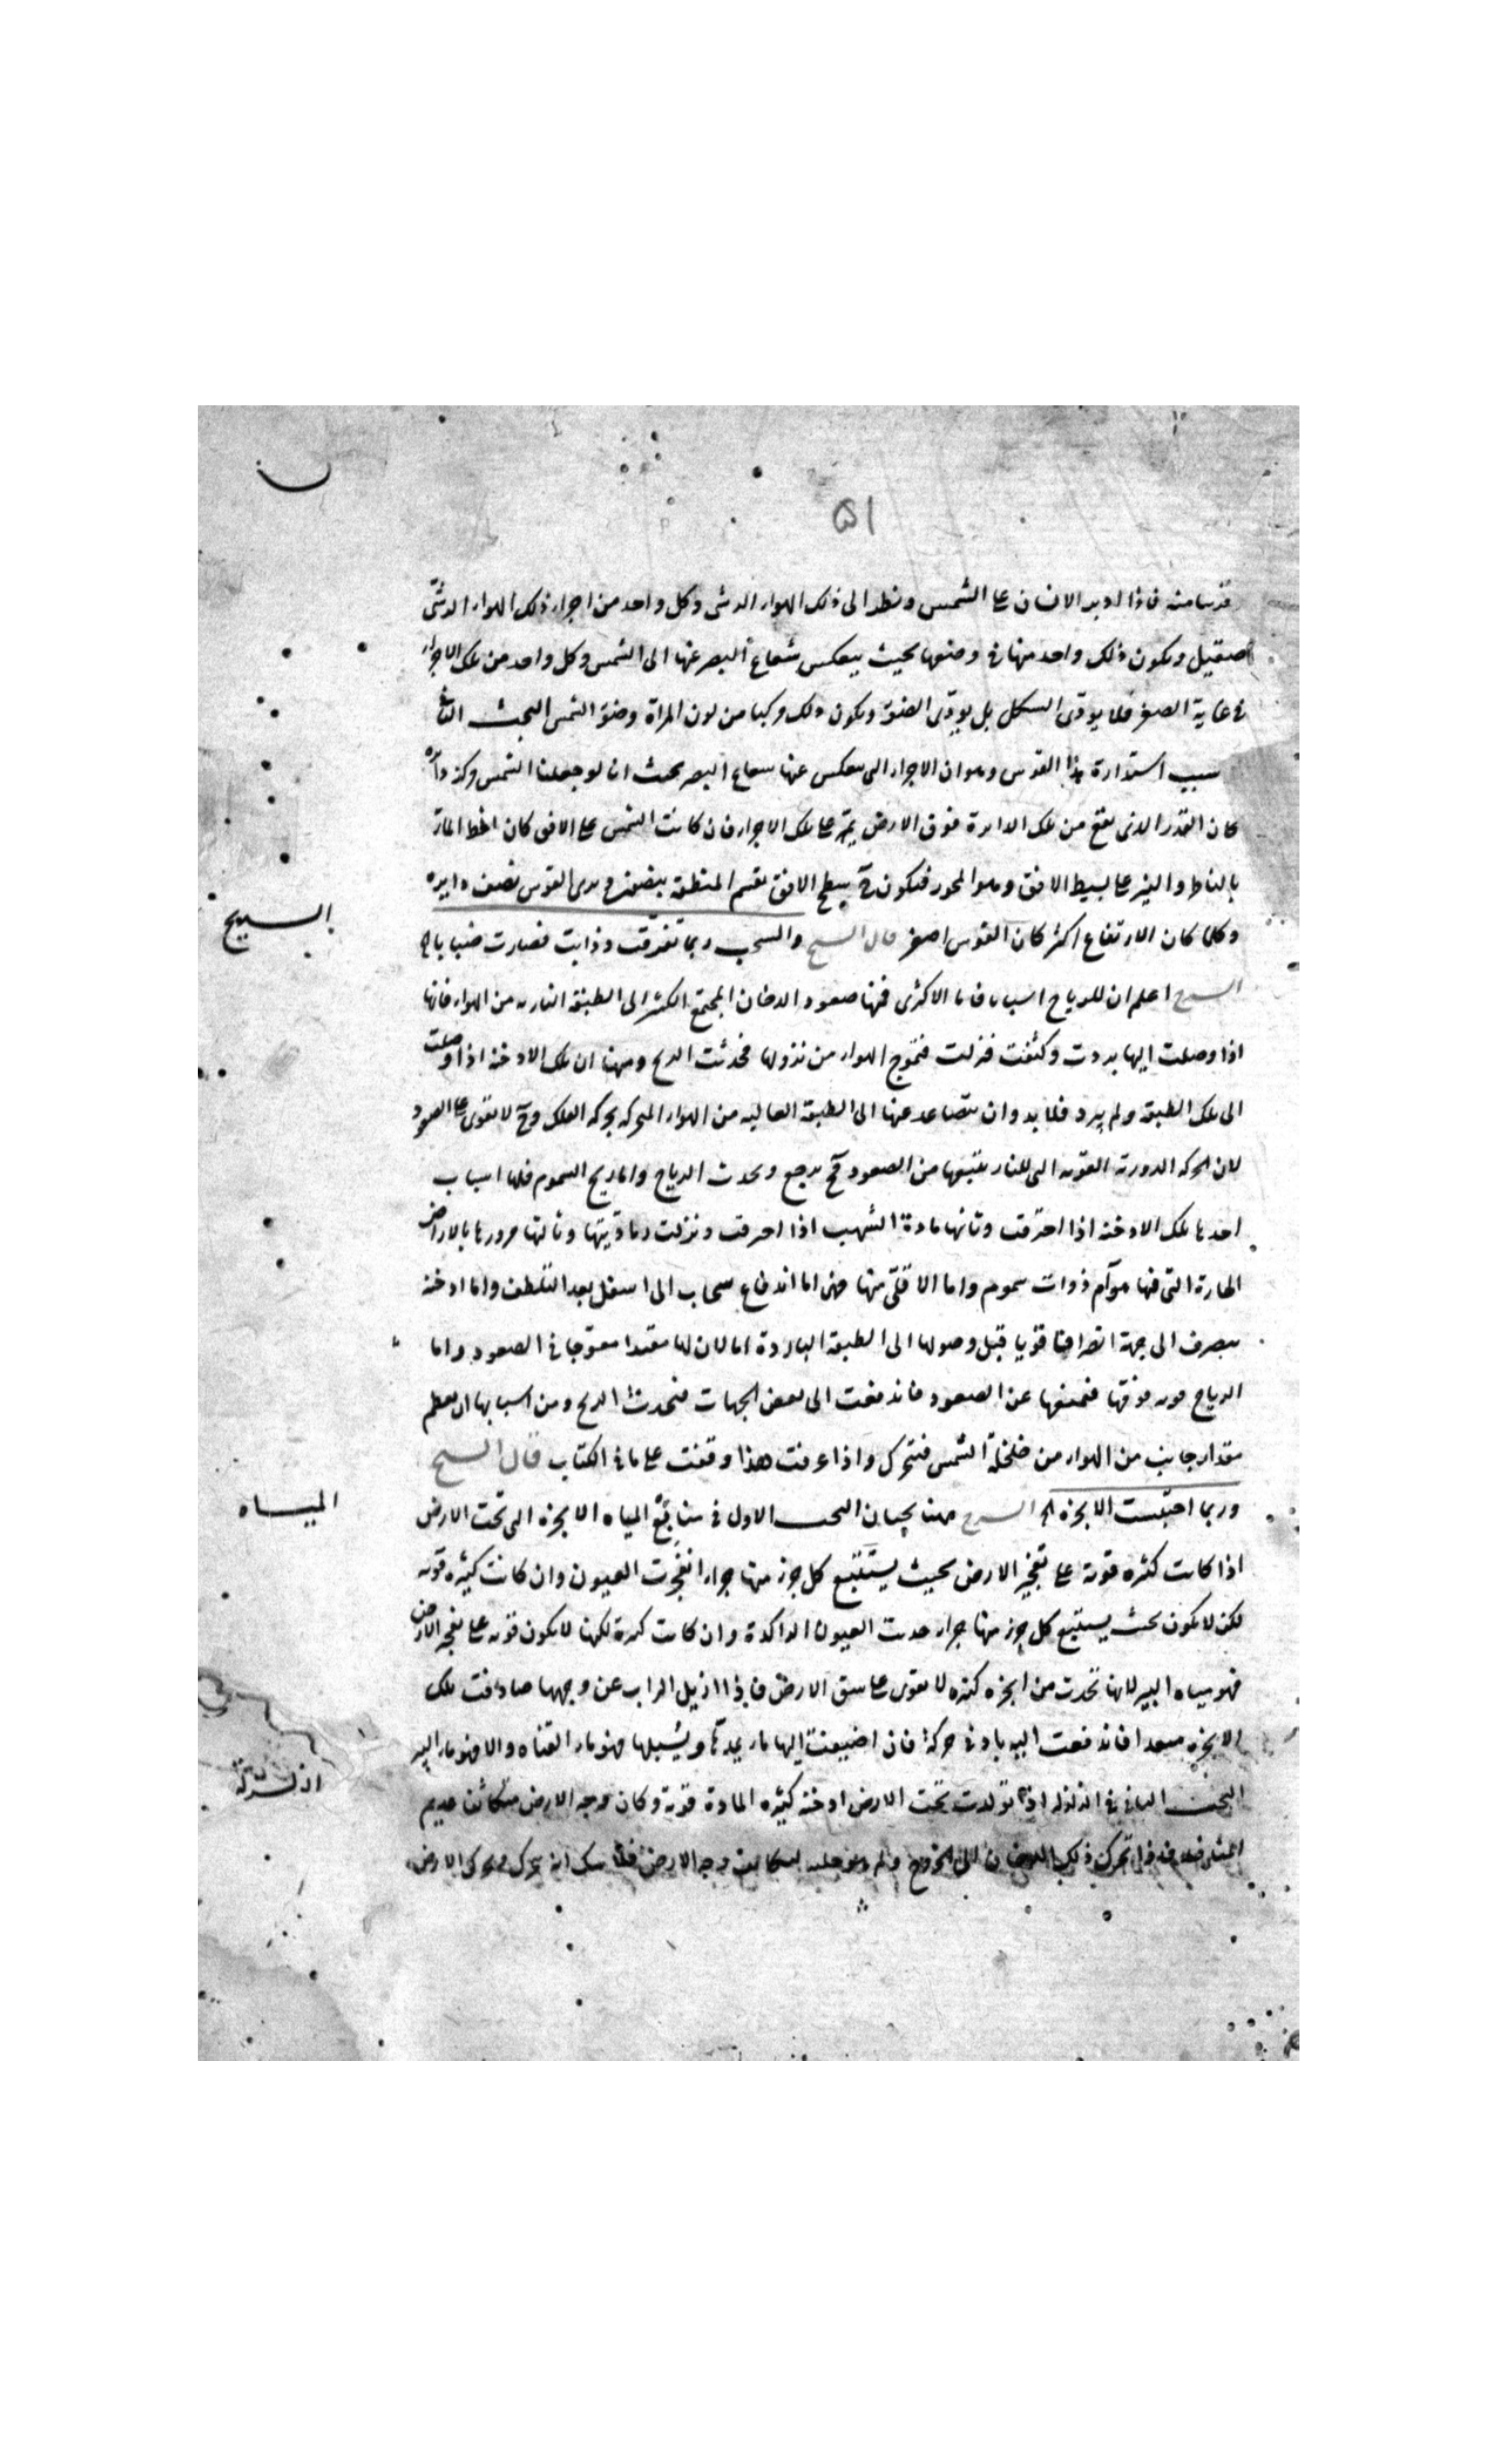 ٥١
قريبا منه فاذا ادبر الانسان على الشمس ونظر الى ذلك الهواء الرشى وكل واحد من اجزاء ذلك الهواء الرشى
صقيل ويكون ذلك واحد منها فى وضعها بحيث ينعكس شعاع البصر عنها الى الشمس وكل واحد من تلك الاجزاء
فى غاية الصغر فلا يؤدى الشكل بل يؤدى الضوء ويكون ذلك مركبا من لون المرآة وضوء الشمس البحث الثانى
سبب استدارة هذا القوس وهو ان الاجزاء التى ينعكس عنها شعاع البصر بحيث ان لو جعلنا الشمس مركز دائرة
كان القدر الذى يقع من تلك الدايرة فوق الارض يمر على تلك الاجزاء فان كانت الشمس على الافق كان الخط المار
بالناظر والنير على بسيط الافق وهو المحور فيكون ح سطح الافق يقسم المنطقة بنصفين ويرى القوس نصف دايره
وكلما كان الارتفاع اكثر كان القوس اصغر قال الشيخ والسحب ربما تفرقت وذابت فصارت ضبابا الخ
الريح
الشرح اعلم ان للرياح اسبابا فاما الاكثرى فمنها صعود الدخان المجتمع الكثير الى الطبقة الباردة من الهواء فانها
اذا وصلت اليها بردت وكثفت فنزلت فتموج الهواء من نزولها فحدثت الريح ومنها ان تلك الادخنه اذا وصلت
الى تلك الطبقه ولم يبرد فلا بد وان يتصاعد عنها الى الطبقة العاليه من الهواء المتحركه بحركه الفلك وح لا تقوى على الصعود
لان الحركه الدورية القويه التى للنار تمنعها من الصعود فح يرجع ويحدث الرياح واما ريح السموم فلها اسباب
احدها تلك الادخنه اذا احترقت وثانيها مادة الشهب اذا احرقت ونزلت رماديتها وثالثها مرورها بالاراضى
الحارة التى فيها مواضع ذوات سموم واما الاقلى منها فهى اما اندفاع سحاب الى اسفل بعد التلطف واما ادخنه
ينصرف الى جهة انصرافا قويا قبل وصولها الى الطبقه الباردة اما لان لها منفذا معوجا فى الصعود واما
الرياح فوقها فتمنعها عن الصعود فاندفعت الى بعض الجهات فيحدث الريح ومن اسبابها ان يعظم
مقدار جانب من الهواء من خلخلة الشمس فيتحرك واذا عرفت هذا وقفت على ما فى الكتاب قال الشيخ
المياه
وربما احتبست الابخره الخ الشرح ههنا بحثان البحث الاول فى منابع المياه الابخره التى تحت الارض
اذا كانت كثيره قوية على تفجير الارض بحيث يستتبع كل جزء منها جزءا انفجرت العيون وان كانت كثيره قويه
لكن لا يكون بحيث يستتبع كل جزء منها جزءا حدثت العيون الراكدة وان كانت كثيرة لكنها لا يكون قويه على تفجير الارض
فهو مياه البير لانها تحدث من ابخره كثيره لا تقوى على شق الارض فاذا ازيل التراب عن وجهها صادفت تلك
الابخره منفذا فاندفعت اليه بادنى حركة فان اضيفت اليها ما يمدها ويسيلها فهو ماء القناه والا فهو ماء البير
الزلزلة
البحث الثانى فى الزلزله اذا تولدت تحت الارض ادخنه كثيره المادة قوية وكان وجه الارض متكاثفا عديم
المنافذ فاذا تحرك ذلك الدخان الى الخروج ولم لتكاثف وجه الارض فلا شك انه يتحرك ويحرك الارض